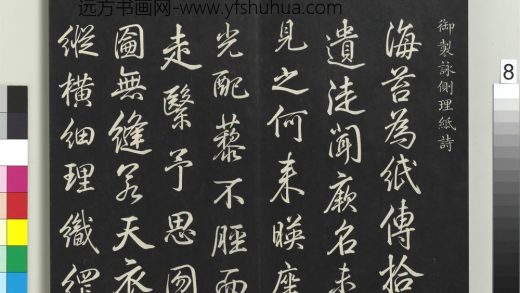 远方书画网-www.yfshuhua.com
御製詠側理紙詩
海苔為紙傳拾
遺徒聞厥名未
見之何来暎座
光配藜不脛而
走繄予思囫
圇無縫若天衣
縱橫細理織網
8